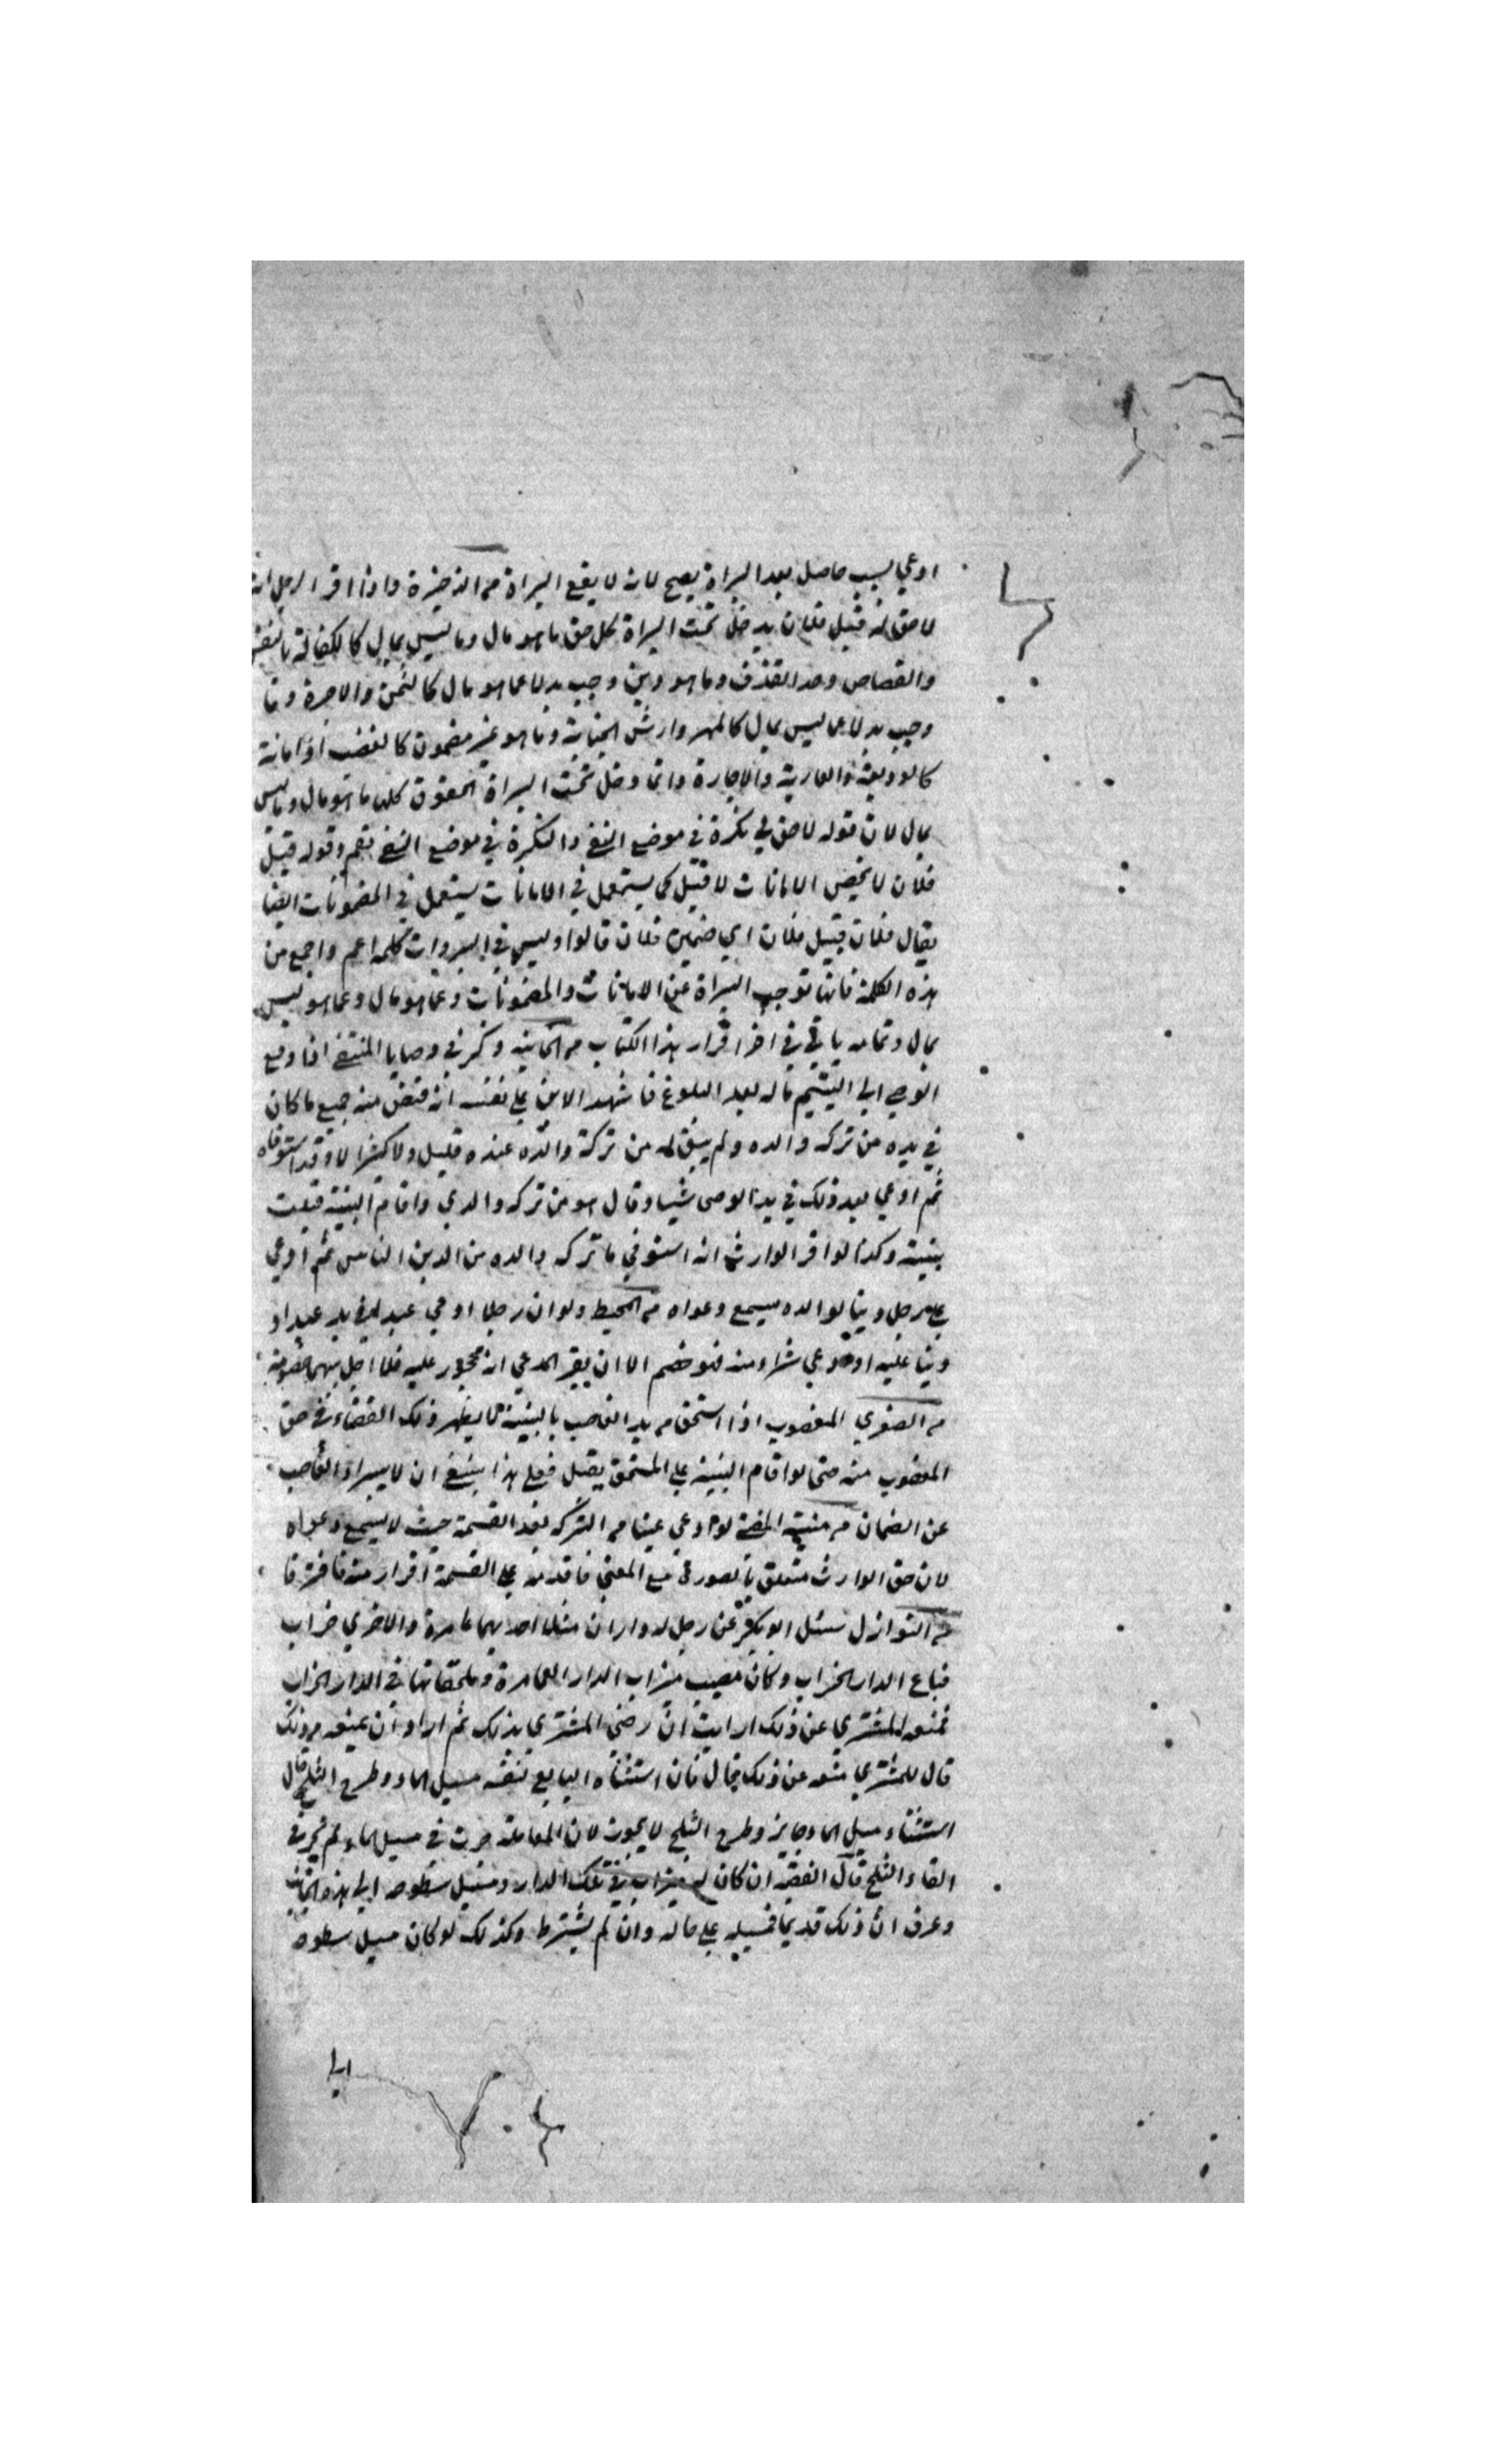 ادعي بسبب حاصل بعد البراة يصح لان لا يقع البراة من الذخيرة واذا اقر الرجل انه
لا حق له قبل فلان يدخل تحت البراة كل حق ما هو مال وما ليس بمال كالكفالة بالنفس
والقصاص وحد القذف وما هو دين وجب بدلا عما هو مال كالثمن والاجرة وما
وجب بدلا عما ليس بمال كالمهر وارش الجناية وما هو عين مضمون كالغصب او امانة
كالوديعة والعارية والاجارة وانما دخل تحت البراة الحقوق كلها ما هو مال وما ليس
بمال لان قوله لا حق لي نكرة في موضع النفي والنكرة في موضع النفي تعم وقوله قبل
فلان لا يخص الامانات لا قبل كما يستعمل في الامانات يستعمل في المضمونات ايضا
يقال فلان قبيل فلان اي ضمين فلان قالوا وليس في البروات كلمة اعم واجمع من
هذه الكلمة فانها توجب البراة عن الامانات والمضمونات وعما هو مال وعما هو ليس
بمال وتمامه ياتي في اخر اقرار هذا الكتاب من الخانية وذكر في وصايا المنتقى اذا دفع
الوصي الى اليتيم ماله بعد البلوغ فاشهد الابن على نفسه انه قبض منه جميع ما كان
في يده من تركة والده ولم يبق له من تركة والده عنده قليل ولا كثير الا وقد استوفاه
ثم ادعي بعد ذلك في يد الوصى شيا وقال هو من تركة والدي واقام البينة قبلت
بينته وكذا لو اقر الوارث انه استوفي ما تركه والده من الدين الناس ثم ادعي
على رجل دينا لوالده يسمع دعواه من المحيط ولو ان رجلا ادعي عبدا في يد عبد او
دينا عليه او ادعي شراء منه فهو خصم الا ان يقر المدعي انه محجور عليه فلا اجعل بينهما خصومة
من الصغري المغصوب اذا استحق من يد الغاصب بالبينة لا يظهر ذلك القضاء في حق
المغصوب منه حتى لو اقام البينة على المستحق يقبل فعلى هذا ينبغي ان لا يبراء الغاصب
عن الضمان من منية المفتي لو ادعي عينا من التركة بعد القسمة حيث لا يسمع دعواه
لان حق الوارث متعلق بالصورة مع المعني فاقدمه على القسمة اقرار منه
من النوازل سئل ابو بكر عن رجل له داران مثلا احديهما عامرة والاخري خراب
فباع الدار الخراب وكان مصب ميزاب الدار العامرة وملحقاتها في الدار الخراب
فمنعه المشتري عن ذلك ارايت ان رضي المشتري بذلك ثم اراد ان يمنعه من ذلك
قال للمشتري منعه عن ذلك بحال فان استثناه البايع نفسه مسيل الماء وطرح الثلج قال
استثناء مسيل الماء جايز وطرح الثلج لا يجوز لان المعاملة جرت في مسيل الماء ولم تجر في
القاء الثلج قال الفقيه ان كان له ميزاب في تلك الدار ومسيل سطوحه الى هذه الجانب
وعرف ان ذلك قديما فمسيله على حاله وان لم يشترط وكذلك لو كان مسيل سطوحه
الى